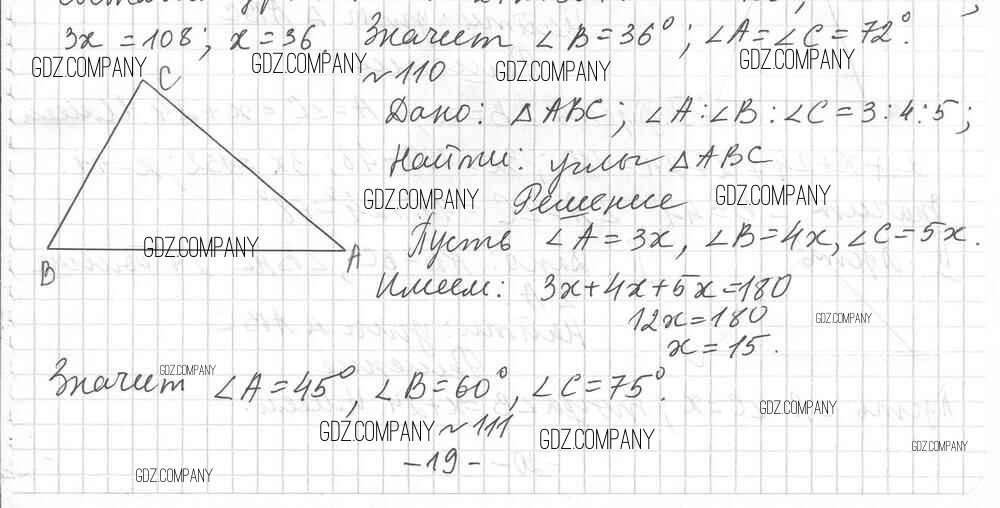 3x = 108; x = 36. Значит ∠B = 36°; ∠A = ∠C = 72°.
GDZ.COMPANY GDZ.COMPANY GDZ.COMPANY GDZ.COMPANY
№110
C
Дано: △ABC; ∠A:∠B:∠C = 3:4:5;
Найти: углы △ABC
GDZ.COMPANY Решение GDZ.COMPANY
Пусть ∠A = 3x, ∠B = 4x, ∠C = 5x.
GDZ.COMPANY
B A
Имеем: 3x + 4x + 5x = 180
12x = 180 GDZ.COMPANY
x = 15.
GDZ.COMPANY
Значит ∠A = 45°, ∠B = 60°, ∠C = 75°.
GDZ.COMPANY
GDZ.COMPANY №111 GDZ.COMPANY GDZ.COMPANY
-19-
GDZ.COMPANY